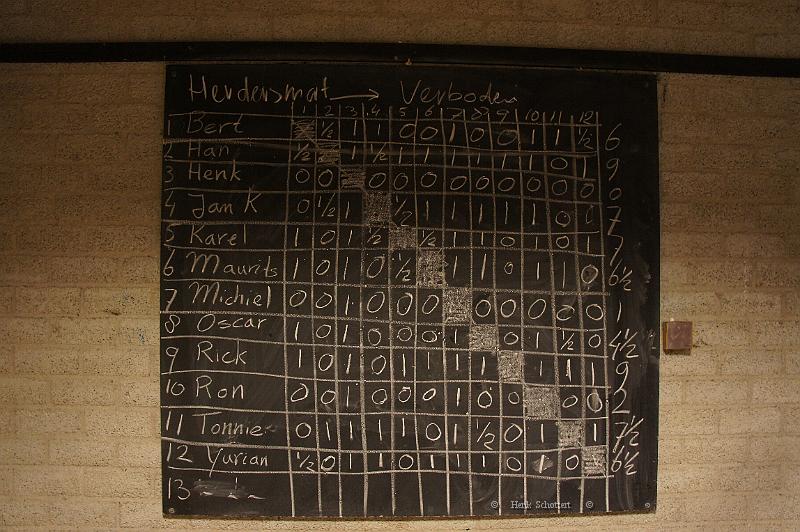 Herdersmat → Verboden
1 2 3 4 5 6 7 8 9 10 11 12
1 Bert ½ 1 1 0 0 1 0 0 1 1 ½ 6
2 Han ½ 1 ½ 1 1 1 1 1 1 0 1 9
3 Henk 0 0 0 0 0 0 0 0 0 0 0 0
4 Jan K 0 ½ 1 ½ 1 1 1 1 1 0 0 7
5 Karel 1 0 1 ½ ½ 1 1 0 1 0 1 7
6 Maurits 1 0 1 0 ½ 1 1 0 1 1 0 6½
7 Michiel 0 0 1 0 0 0 0 0 0 0 0 1
8 Oscar 1 0 1 0 0 0 1 0 1 ½ 0 4½
9 Rick 1 0 1 0 1 1 1 1 1 1 1 9
10 Ron 0 0 1 0 0 0 1 0 0 0 0 2
11 Tonnie 0 1 1 1 1 0 1 ½ 0 1 1 7½
12 Yurian ½ 0 1 1 0 1 1 1 0 1 0 6½
13
© Henk Schottert ©